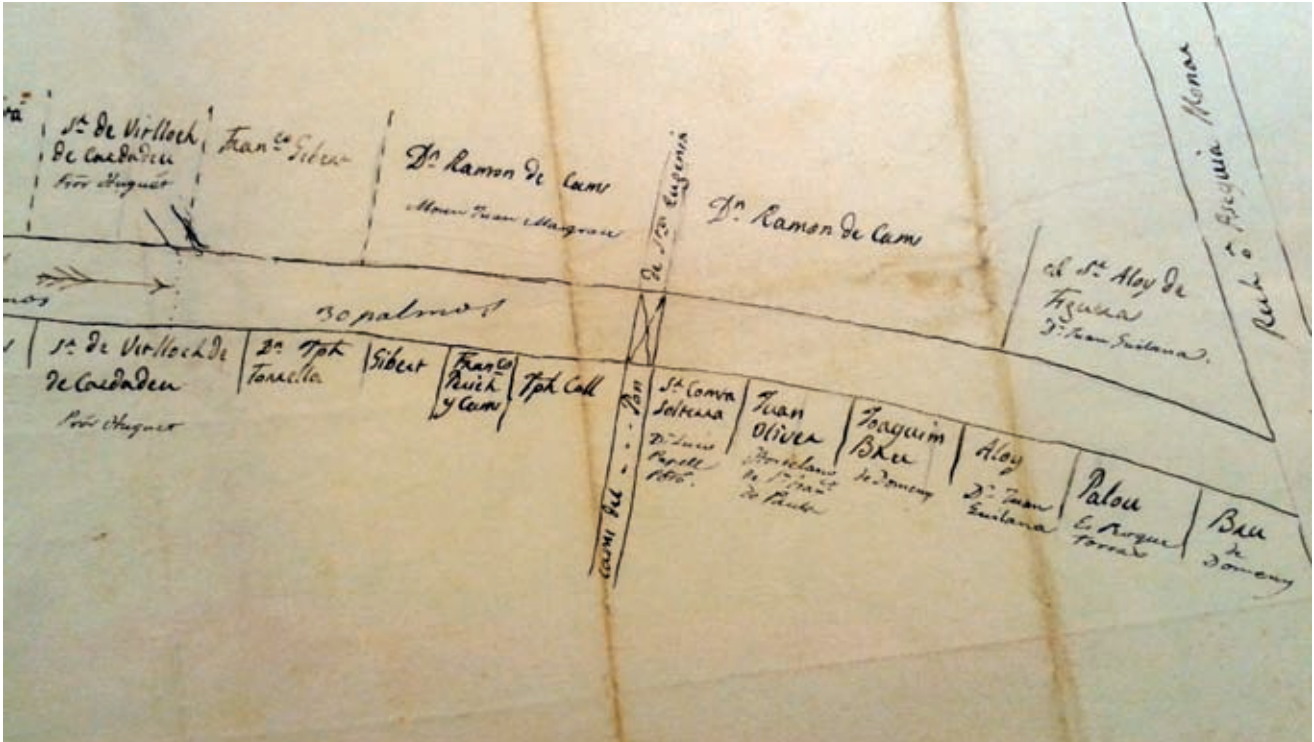 Sr. de Virlloch
de Cardadeu
Pror Huguet
Franco Gibert
Dn. Ramon de Cams
Mosen Juan Margrau
de Sta Eugenia
Dn. Ramon de Cams
el Sr. Aloy de
Figuera
Dn. Juan Guilana.
Rech ò Sequia Monar
30 palmos
Sr. de Virlloch de
de Cardadeu
Pror Huguet
Dn. Jph
Torrella
Gibert
Franco
Puich
y Cams
Jph Coll
Cami del Pon
Soltera
Dn. Luis
Juan
Oliver
de Sn. Fran
de Paula
Joaquim
Bru
de Domeny
Aloy
Dn. Juan
Guilana
Palou
Es Roque
Torras
Bru
de
Domeny